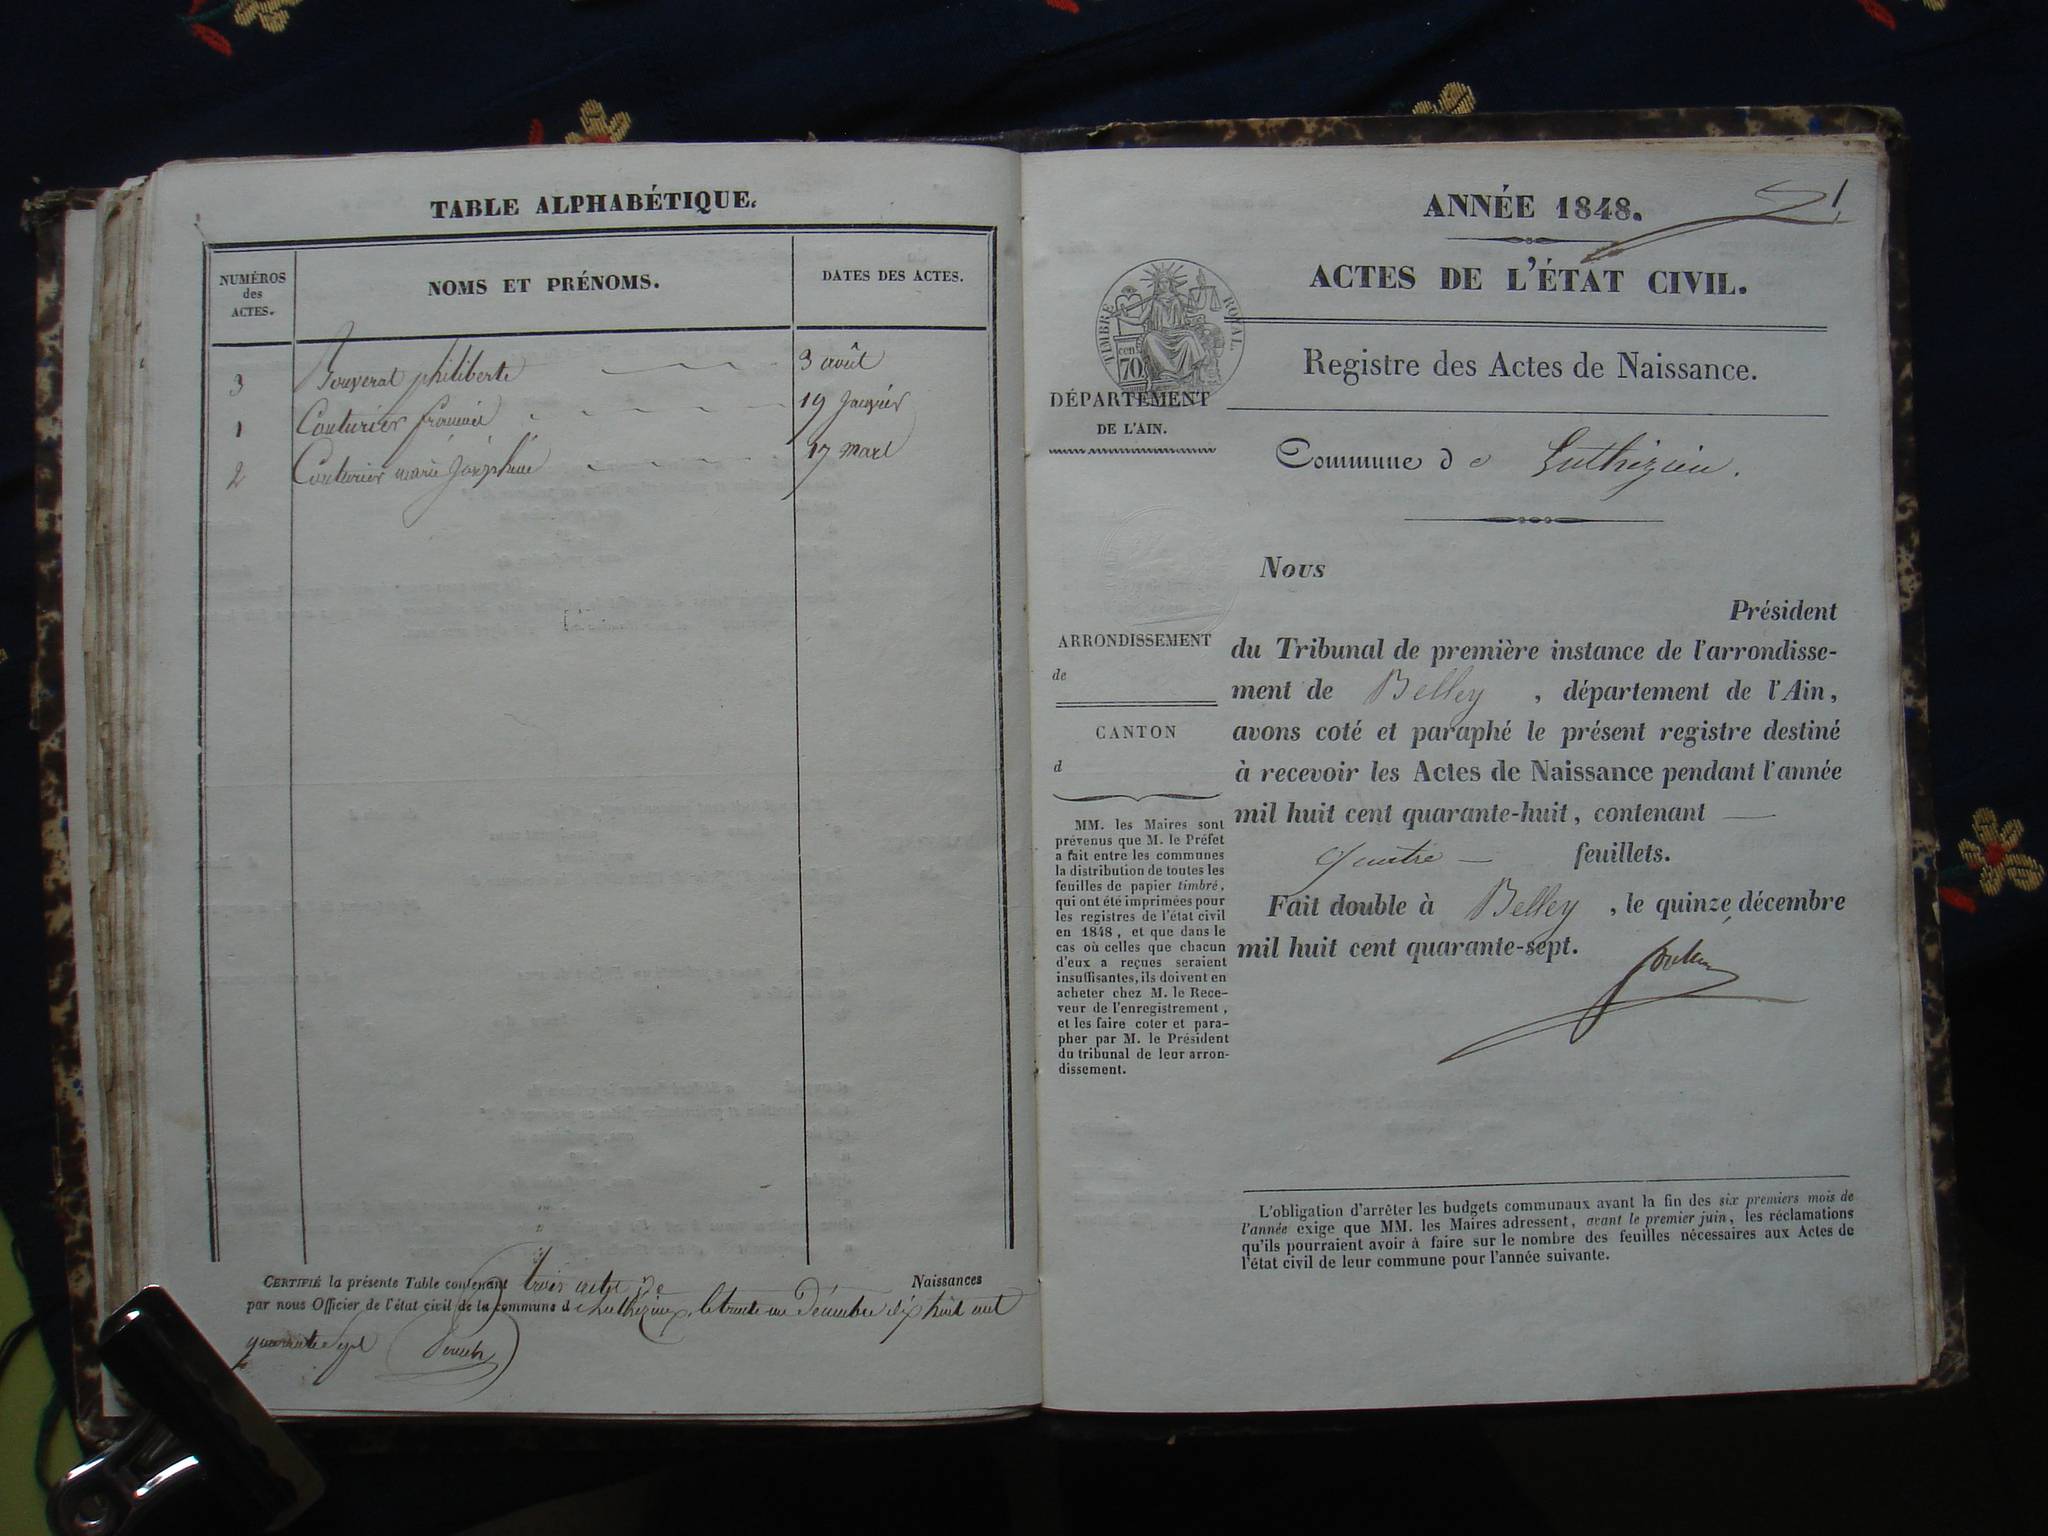 TABLE ALPHABÉTIQUE.
NUMÉROS
des
ACTES.
NOMS ET PRÉNOMS.
DATES DES ACTES.
3 philiberte 3 août
1 Couturier 19 Janvier
2 Couturier marie Joséphine 17 Mars
CERTIFIÉ la présente Table contenant trois actes de Naissances
par nous Officier de l'état civil de la commune d Luthézieu, le trente un Décembre dix huit cent
quarante sept
1
ANNÉE 1848.
ACTES DE L'ÉTAT CIVIL.
TIMBRE ROYAL
cen.
70
Registre des Actes de Naissance.
DÉPARTEMENT
DE L'AIN.
Commune de Luthézieu.
Nous
Président
du Tribunal de première instance de l'arrondisse-
ment de Belley, département de l'Ain,
avons coté et paraphé le présent registre destiné
à recevoir les Actes de Naissance pendant l'année
mil huit cent quarante-huit, contenant —
quatre — feuillets.
Fait double à Belley, le quinze décembre
mil huit cent quarante-sept.
ARRONDISSEMENT
de
CANTON
d
MM. les Maires sont
prévenus que M. le Préfet
a fait entre les communes
la distribution de toutes les
feuilles de papier timbré,
qui ont été imprimées pour
les registres de l'état civil
en 1848, et que dans le
cas où celles que chacun
d'eux a reçues seraient
insuffisantes, ils doivent en
acheter chez M. le Rece-
veur de l'enregistrement,
et les faire coter et para-
pher par M. le Président
du tribunal de leur arron-
dissement.
L'obligation d'arrêter les budgets communaux avant la fin des six premiers mois de
l'année exige que MM. les Maires adressent, avant le premier juin, les réclamations
qu'ils pourraient avoir à faire sur le nombre des feuilles nécessaires aux Actes de
l'état civil de leur commune pour l'année suivante.